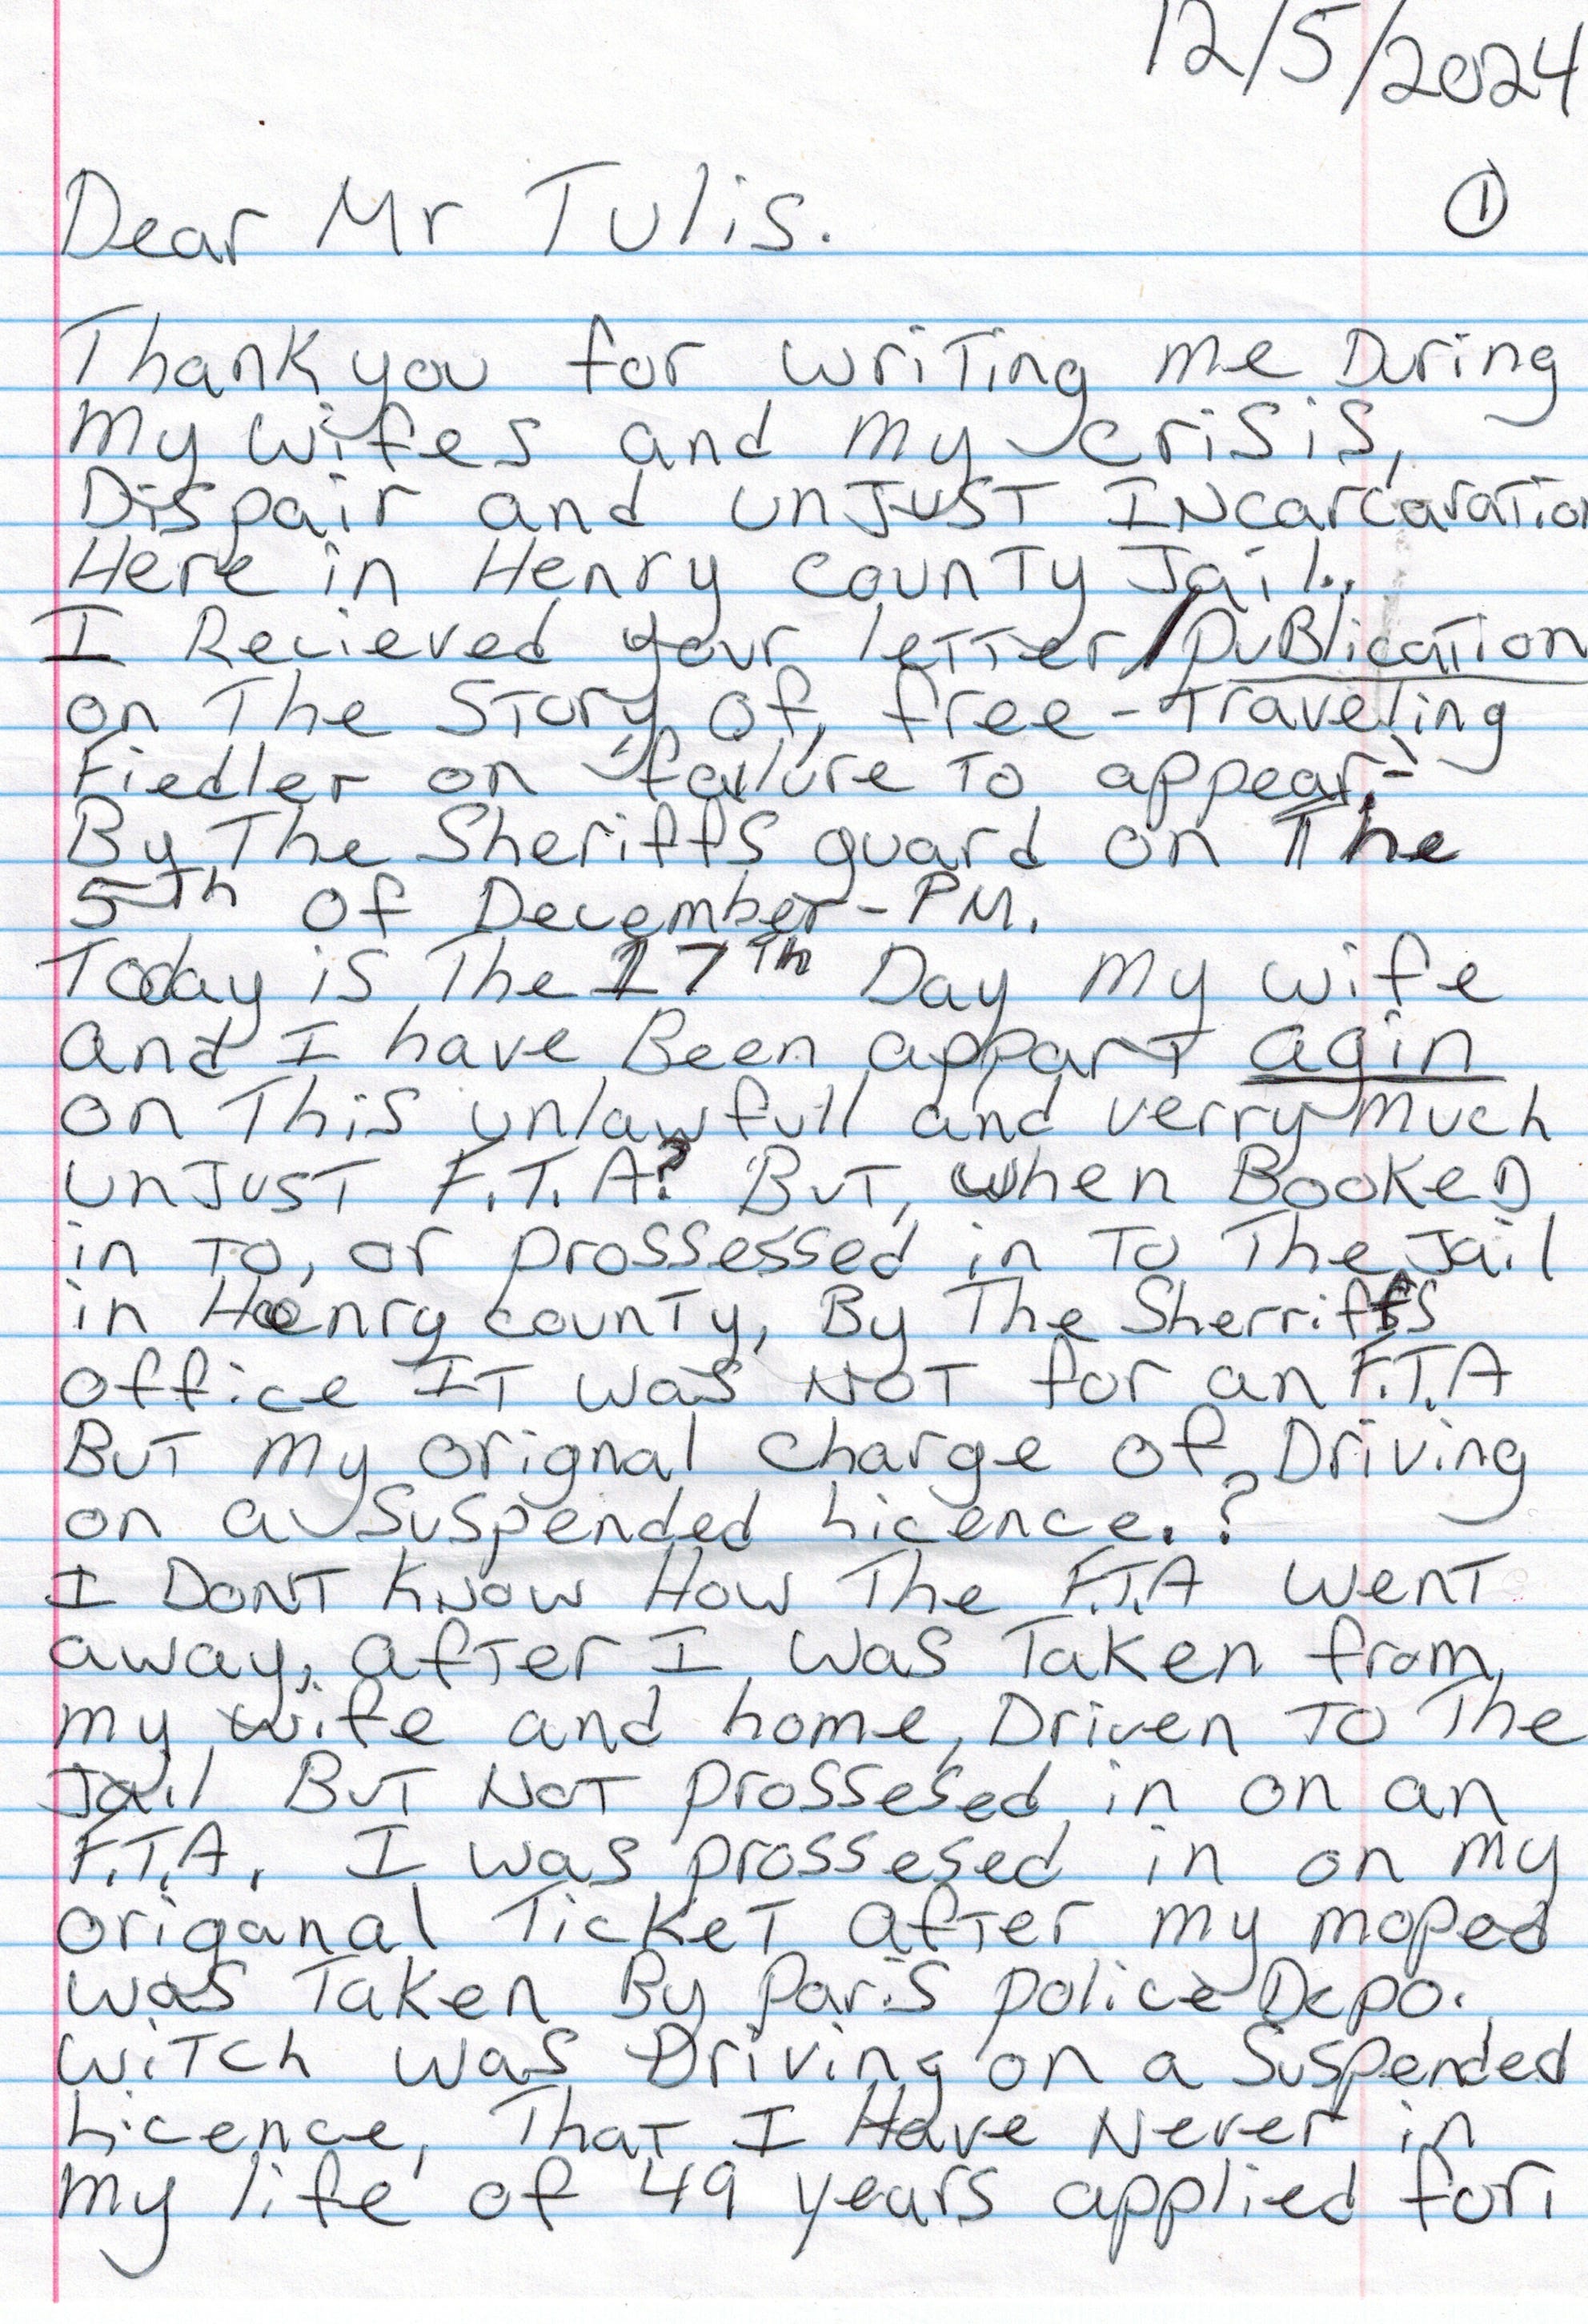 12/5/2024
①
Dear Mr Tulis.
Thank you for writing me During
my wifes and my crisis,
Dispair and unJusT INcarcaration
Here in Henry county Jail..
I Recieved your letter/publication
on The Story of, free-Traveling
Fiedler on "failure To appear,"
By The Sheriffs guard on The
5th of December-PM.
Today is The 17th Day my wife
and I have Been appart agin
on This unlawfull and verry much
unJusT F.T.A? BuT, when BookeD
in To, or prossessed in To The Jail
in Henry county, By The Sherriffs
office IT was NOT for an F.T.A
BuT my orignal charge of Driving
on a Suspended Licence.?
I DonT Know How The F.T.A wenT
away, after I was Taken from
my wife and home, Driven To The
Jail BuT NoT prossesed in on an
F.T.A. I was prossesed in on my
origanal TickeT after my moped
was Taken By Paris police Depo.
witch was Driving on a Suspended
Licence, ThaT I Have Never in
my life of 49 years applied for,